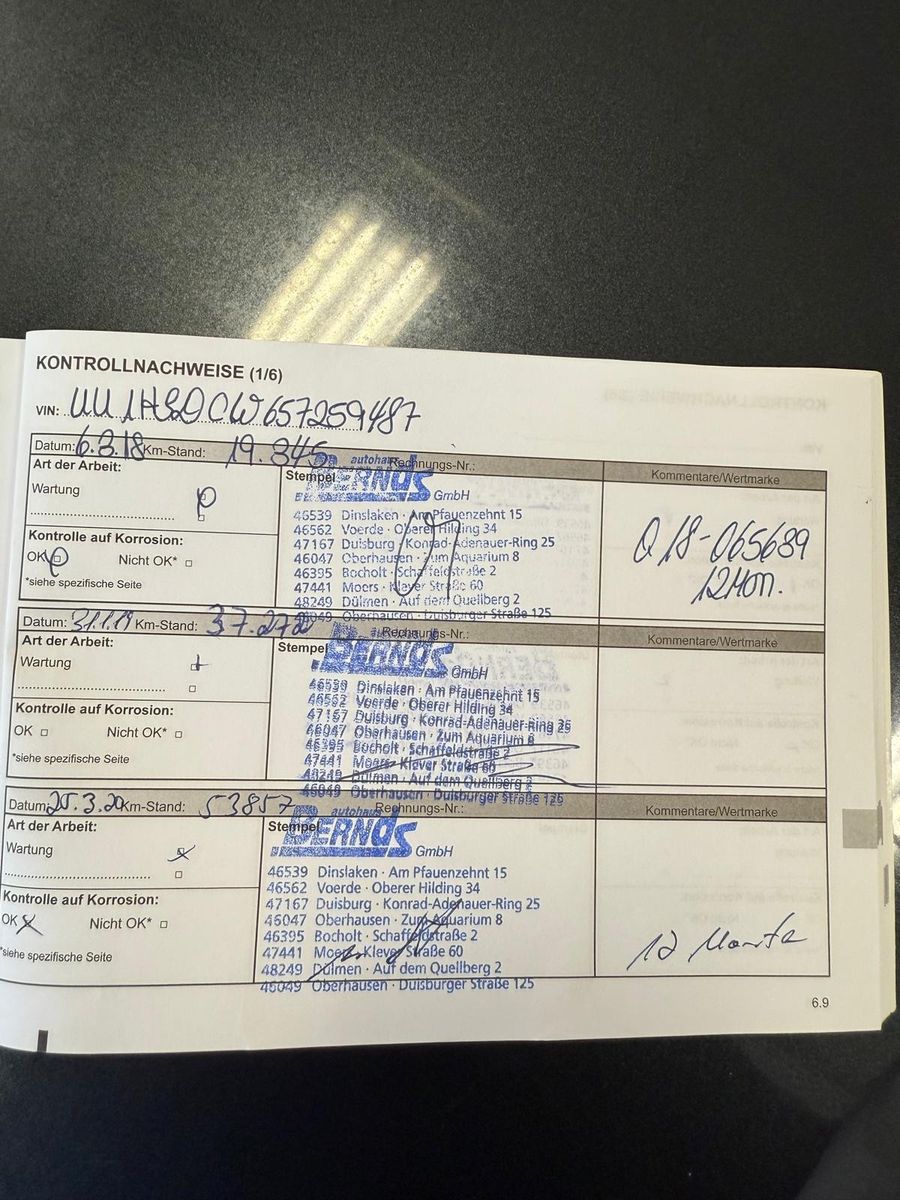 KONTROLLNACHWEISE (1/6)
VIN: UU1HSDCW657259487
Datum: 6.3.18 Km-Stand: 19.345 Rechnungs-Nr.: Kommentare/Wertmarke
Art der Arbeit:
Wartung
Kontrolle auf Korrosion:
OK Nicht OK*
*siehe spezifische Seite
Stempel
autohaus
BERNDS GmbH
46539 Dinslaken · Am Pfauenzehnt 15
46562 Voerde · Oberer Hilding 34
47167 Duisburg · Konrad-Adenauer-Ring 25
46047 Oberhausen · Zum Aquarium 8
46395 Bocholt · Schaffeldstraße 2
47441 Moers · Klever Straße 60
48249 Dülmen · Auf dem Quellberg 2
46049 Oberhausen · Duisburger Straße 125
Q18-065689
12 Mon.
Datum: 31.1.19 Km-Stand: 37.272 Rechnungs-Nr.: Kommentare/Wertmarke
Art der Arbeit:
Wartung
Kontrolle auf Korrosion:
OK Nicht OK*
*siehe spezifische Seite
Stempel
BERNDS GmbH
46539 Dinslaken · Am Pfauenzehnt 15
46562 Voerde · Oberer Hilding 34
47167 Duisburg · Konrad-Adenauer-Ring 25
46047 Oberhausen · Zum Aquarium 8
46395 Bocholt · Schaffeldstraße 2
47441 Moers · Klever Straße 60
48249 Dülmen · Auf dem Quellberg 2
46049 Oberhausen · Duisburger Straße 125
Datum: 25.3.20 Km-Stand: 53857 Rechnungs-Nr.: Kommentare/Wertmarke
Art der Arbeit:
Wartung
Kontrolle auf Korrosion:
OK Nicht OK*
*siehe spezifische Seite
Stempel
autohaus
BERNDS GmbH
46539 Dinslaken · Am Pfauenzehnt 15
46562 Voerde · Oberer Hilding 34
47167 Duisburg · Konrad-Adenauer-Ring 25
46047 Oberhausen · Zum Aquarium 8
46395 Bocholt · Schaffeldstraße 2
47441 Moers · Klever Straße 60
48249 Dülmen · Auf dem Quellberg 2
46049 Oberhausen · Duisburger Straße 125
12
6.9